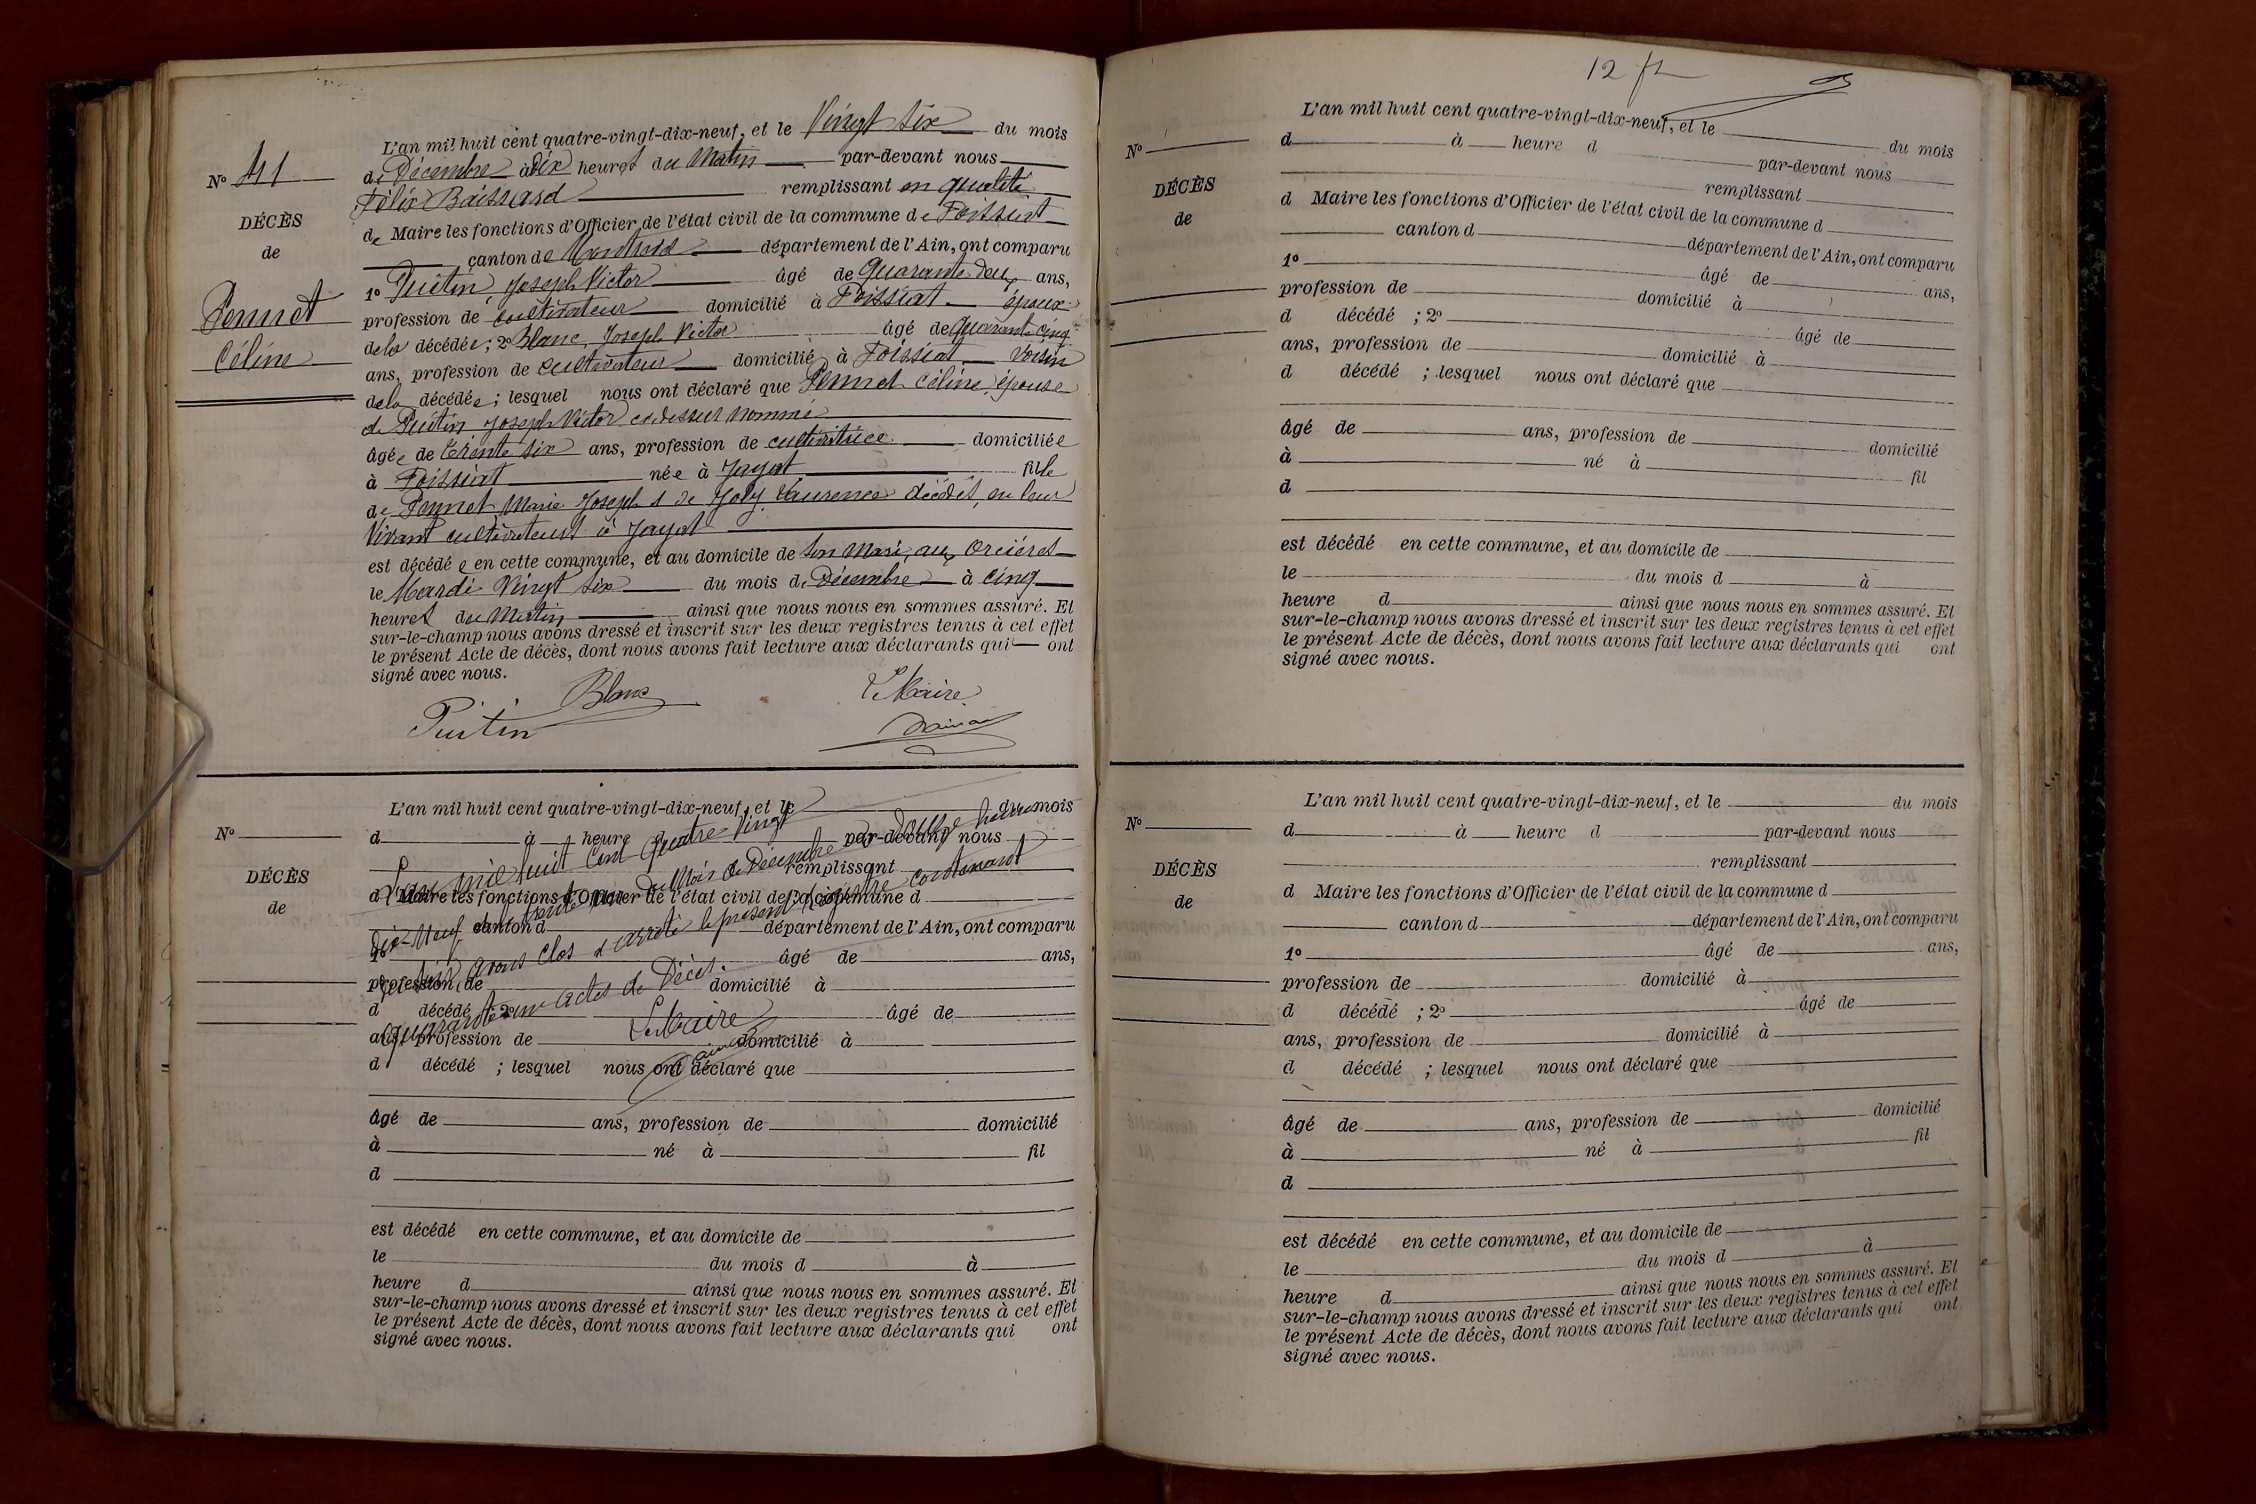 N° 41
DÉCÈS
de
Pennet
Céline
L'an mil huit cent quatre-vingt-dix-neuf, et le Vingt six du mois
de Décembre à Dix heures du Matin par-devant nous
Félix Baissard remplissant en qualité
de Maire les fonctions d'Officier de l'état civil de la commune de Foissiat
canton de Montrevel département de l'Ain, ont comparu
1° Puitin, Joseph Victor âgé de Quarante deux ans,
profession de cultivateur domicilié à Foissiat époux
de la décédée ; 2° Blanc, Joseph Victor âgé de quarante cinq
ans, profession de cultivateur domicilié à Foissiat Voisin
de la décédée ; lesquel nous ont déclaré que Pennet Céline, épouse
de Puitin Joseph Victor ci-dessus nommé
âgée de trente six ans, profession de cultivatrice domiciliée
à Foissiat née à Jayat fille
de Pennet Marie Joseph & de Joly Laurence décédés, en leur
Vivant cultivateurs à Jayat
est décédé e en cette commune, et au domicile de son Mari, aux Orcières
le Mardi Vingt six du mois de Décembre à cinq
heures du Matin ainsi que nous nous en sommes assuré. Et
sur-le-champ nous avons dressé et inscrit sur les deux registres tenus à cet effet
le présent Acte de décès, dont nous avons fait lecture aux déclarants qui ont
signé avec nous.
Blanc
Le Maire
Puitin
N°
DÉCÈS
de
L'an mil huit cent quatre-vingt-dix-neuf, et le du mois
d à heure d par-devant nous
remplissant
d Maire les fonctions d'Officier de l'état civil de la commune d
canton d département de l'Ain, ont comparu
1° âgé de ans,
profession de domicilié à
d décédé ; 2° âgé de
ans, profession de domicilié à
d décédé ; lesquel nous ont déclaré que
âgé de ans, profession de domicilié
à né à fil
d
est décédé en cette commune, et au domicile de
le du mois d à
heure d ainsi que nous nous en sommes assuré. Et
sur-le-champ nous avons dressé et inscrit sur les deux registres tenus à cet effet
le présent Acte de décès, dont nous avons fait lecture aux déclarants qui ont
signé avec nous.
L'an mil huit cent quatre Vingt
Dix Neuf et le trente un du Mois de Décembre à douze heures
du soir, avons Clos & arrêté le présent registre contenant
Quarante un actes de Décès.
Le Maire
12 f
N°
DÉCÈS
de
L'an mil huit cent quatre-vingt-dix-neuf, et le du mois
d à heure d par-devant nous
remplissant
d Maire les fonctions d'Officier de l'état civil de la commune d
canton d département de l'Ain, ont comparu
1° âgé de ans,
profession de domicilié à
d décédé ; 2° âgé de
ans, profession de domicilié à
d décédé ; lesquel nous ont déclaré que
âgé de ans, profession de domicilié
à né à fil
d
est décédé en cette commune, et au domicile de
le du mois d à
heure d ainsi que nous nous en sommes assuré. Et
sur-le-champ nous avons dressé et inscrit sur les deux registres tenus à cet effet
le présent Acte de décès, dont nous avons fait lecture aux déclarants qui ont
signé avec nous.
N°
DÉCÈS
de
L'an mil huit cent quatre-vingt-dix-neuf, et le du mois
d à heure d par-devant nous
remplissant
d Maire les fonctions d'Officier de l'état civil de la commune d
canton d département de l'Ain, ont comparu
1° âgé de ans,
profession de domicilié à
d décédé ; 2° âgé de
ans, profession de domicilié à
d décédé ; lesquel nous ont déclaré que
âgé de ans, profession de domicilié
à né à fil
d
est décédé en cette commune, et au domicile de
le du mois d à
heure d ainsi que nous nous en sommes assuré. Et
sur-le-champ nous avons dressé et inscrit sur les deux registres tenus à cet effet
le présent Acte de décès, dont nous avons fait lecture aux déclarants qui ont
signé avec nous.